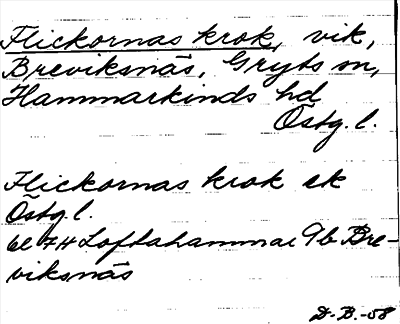 Flickornas krok, vik,
Breviksnäs, Gryts sn,
Hammarkinds hd
Östg. l.
Flickornas krok ek
Östg. l.
bl 7H Loftahammar 9b Bre-
viksnäs
D.B.-58